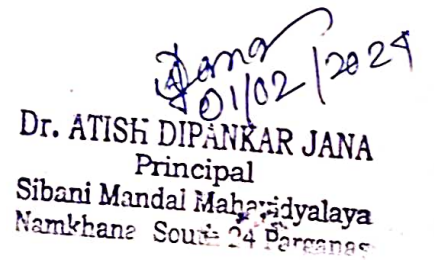 Jana
01/02/2024
Dr. ATISH DIPANKAR JANA
Principal
Sibani Mandal Mahavidyalaya
Namkhana South 24 Parganas